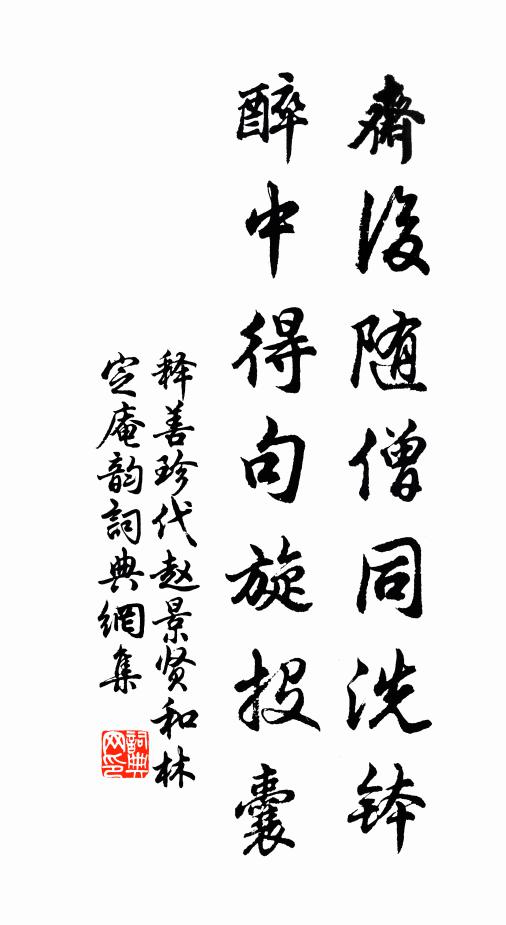 齋後随僧同洗钵
醉中得句旋投囊
释善珍代赵景贤和林
定庵韵詞典網集
詞典网印